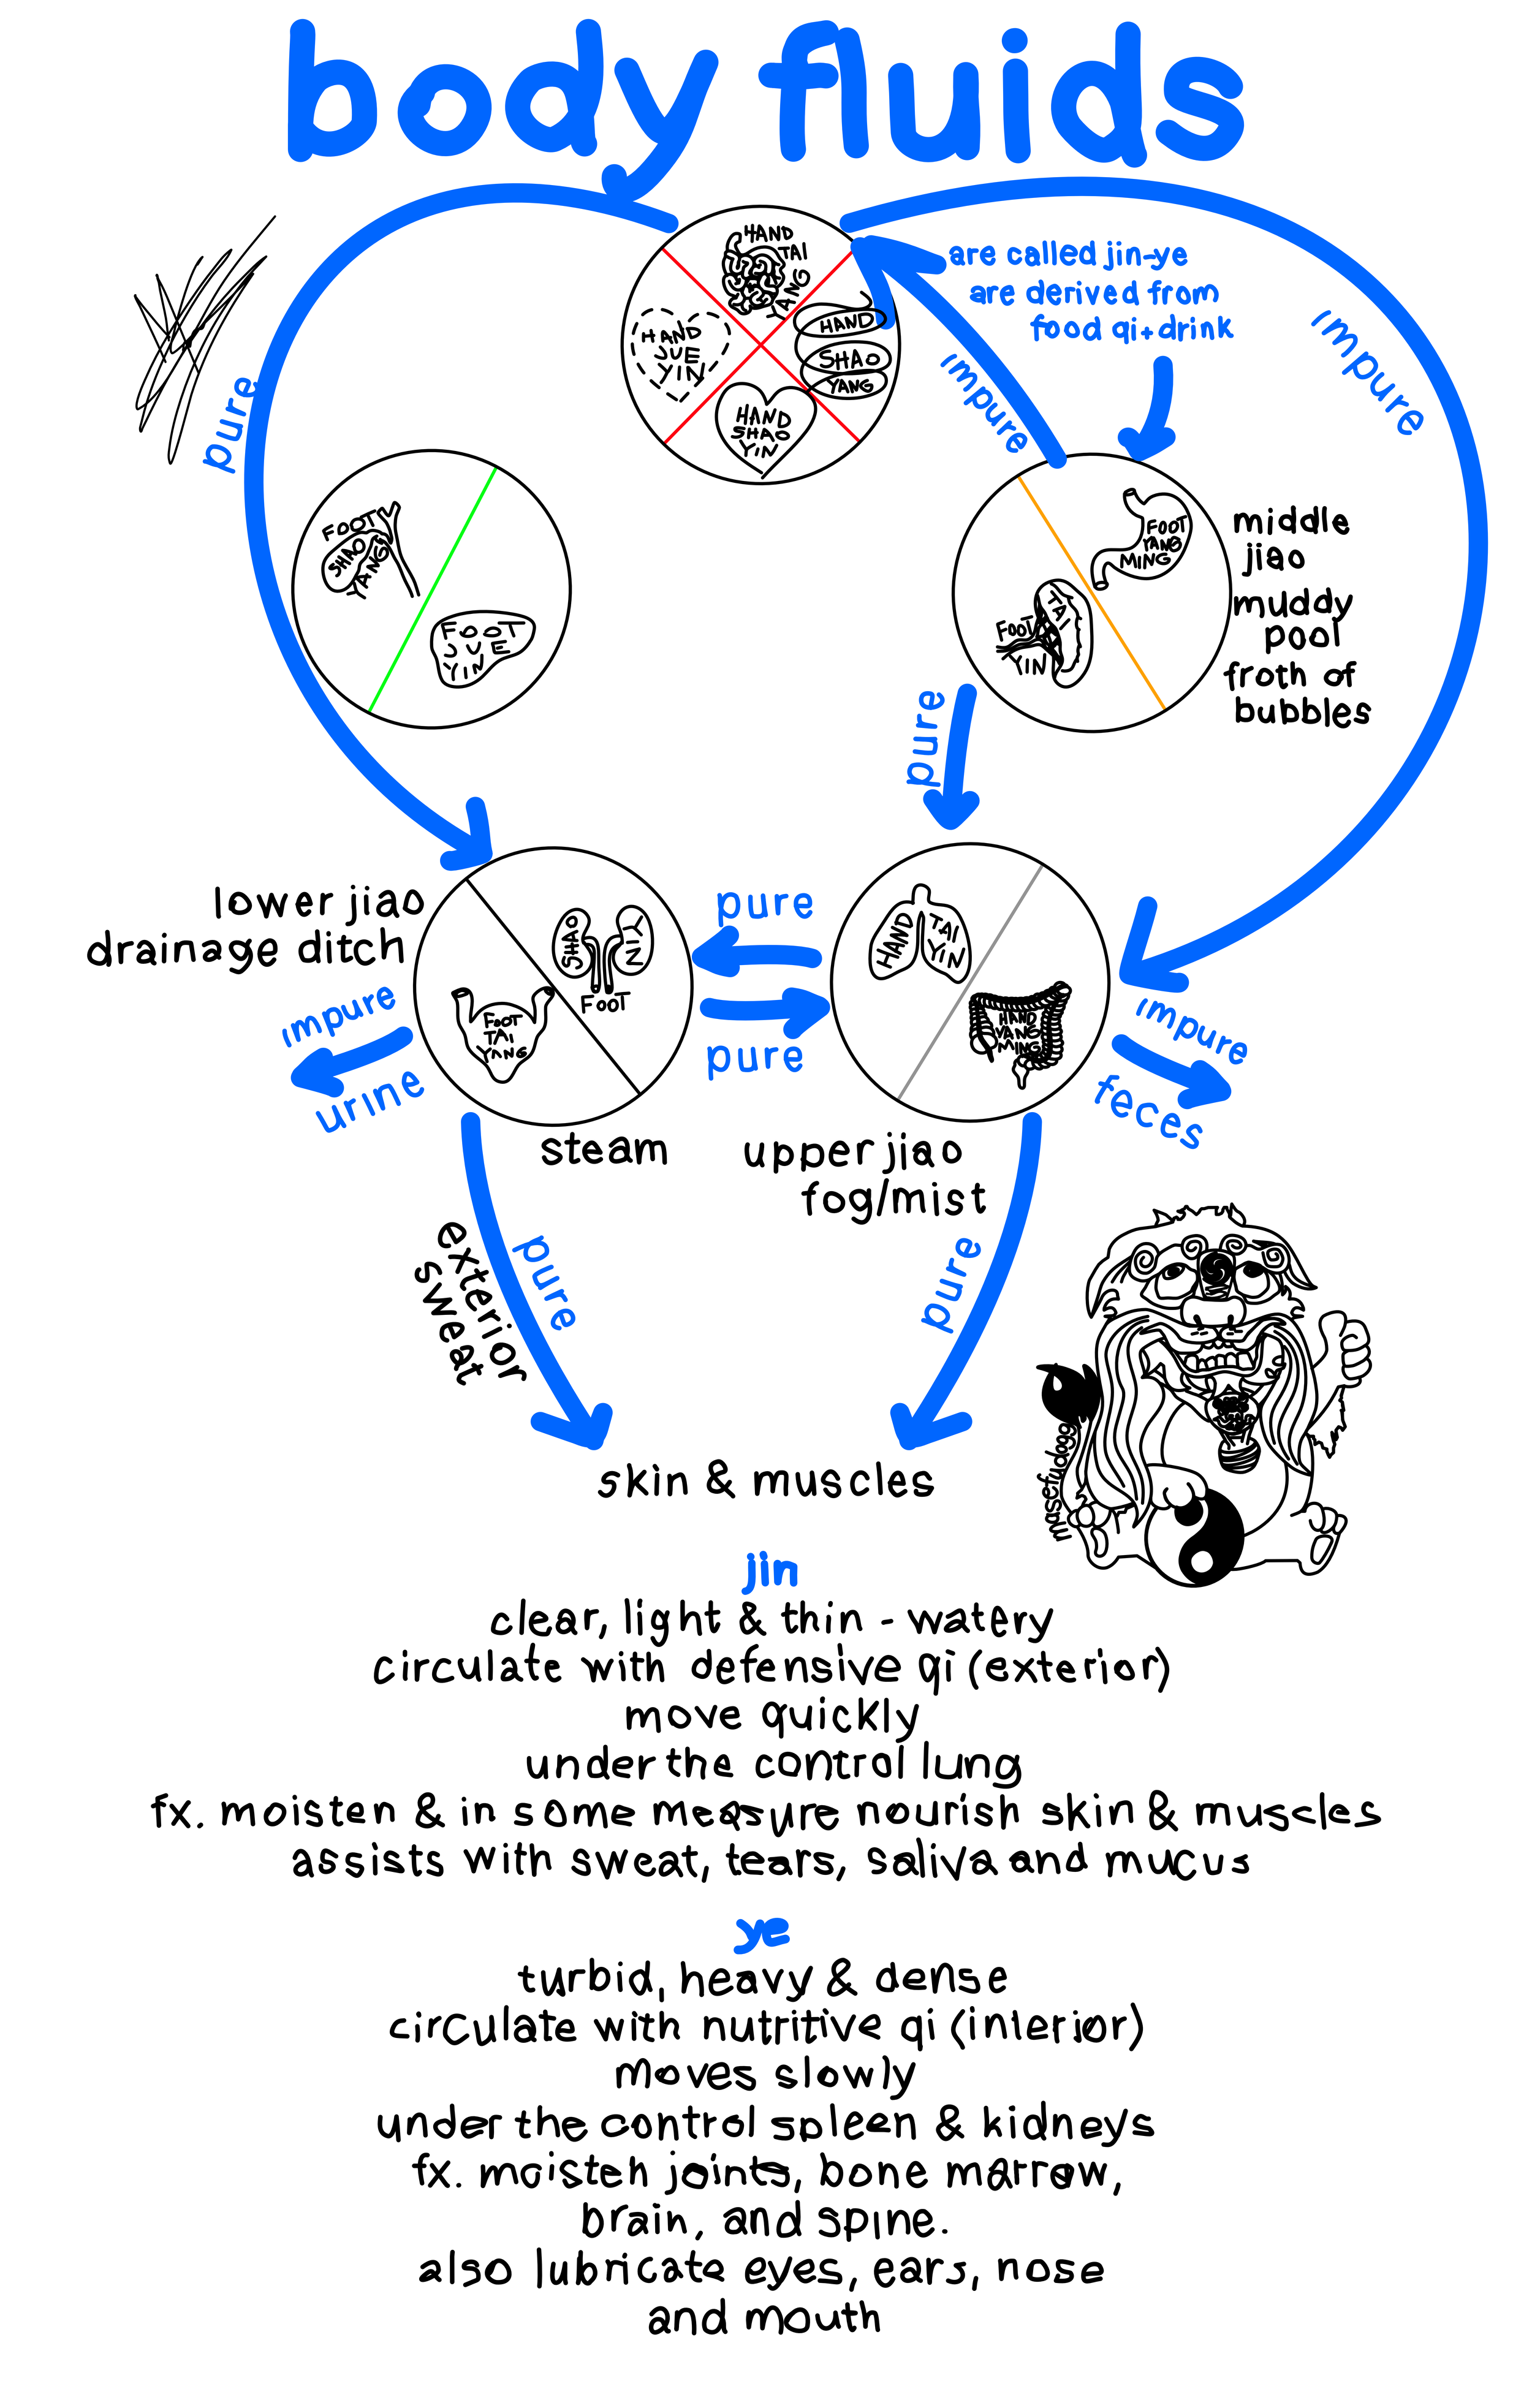 body fluids
are called jin-ye
are derived from
food qi+drink
impure
impure
pure
HAND
TAI
YANG
HAND
JUE
YIN
HAND
SHAO
YANG
HAND
SHAO
YIN
FOOT
SHAO
YANG
FOOT
JUE
YIN
FOOT
YANG
MING
FOOT
TAI
YIN
middle
jiao
muddy
pool
froth of
bubbles
pure
lower jiao
drainage ditch
impure
urine
SHAO
YIN
FOOT
FOOT
TAI
YANG
pure
pure
HAND
TAI
YIN
HAND
YANG
MING
impure
feces
steam
upper jiao
fog/mist
exterior
sweat
pure
pure
masefudogg
skin & muscles
jin
clear, light & thin - watery
circulate with defensive qi (exterior)
move quickly
under the control lung
fx. moisten & in some measure nourish skin & muscles
assists with sweat, tears, saliva and mucus
ye
turbid, heavy & dense
circulate with nutritive qi (interior)
moves slowly
under the control spleen & kidneys
fx. moisten joints, bone marrow,
brain, and spine.
also lubricate eyes, ears, nose
and mouth